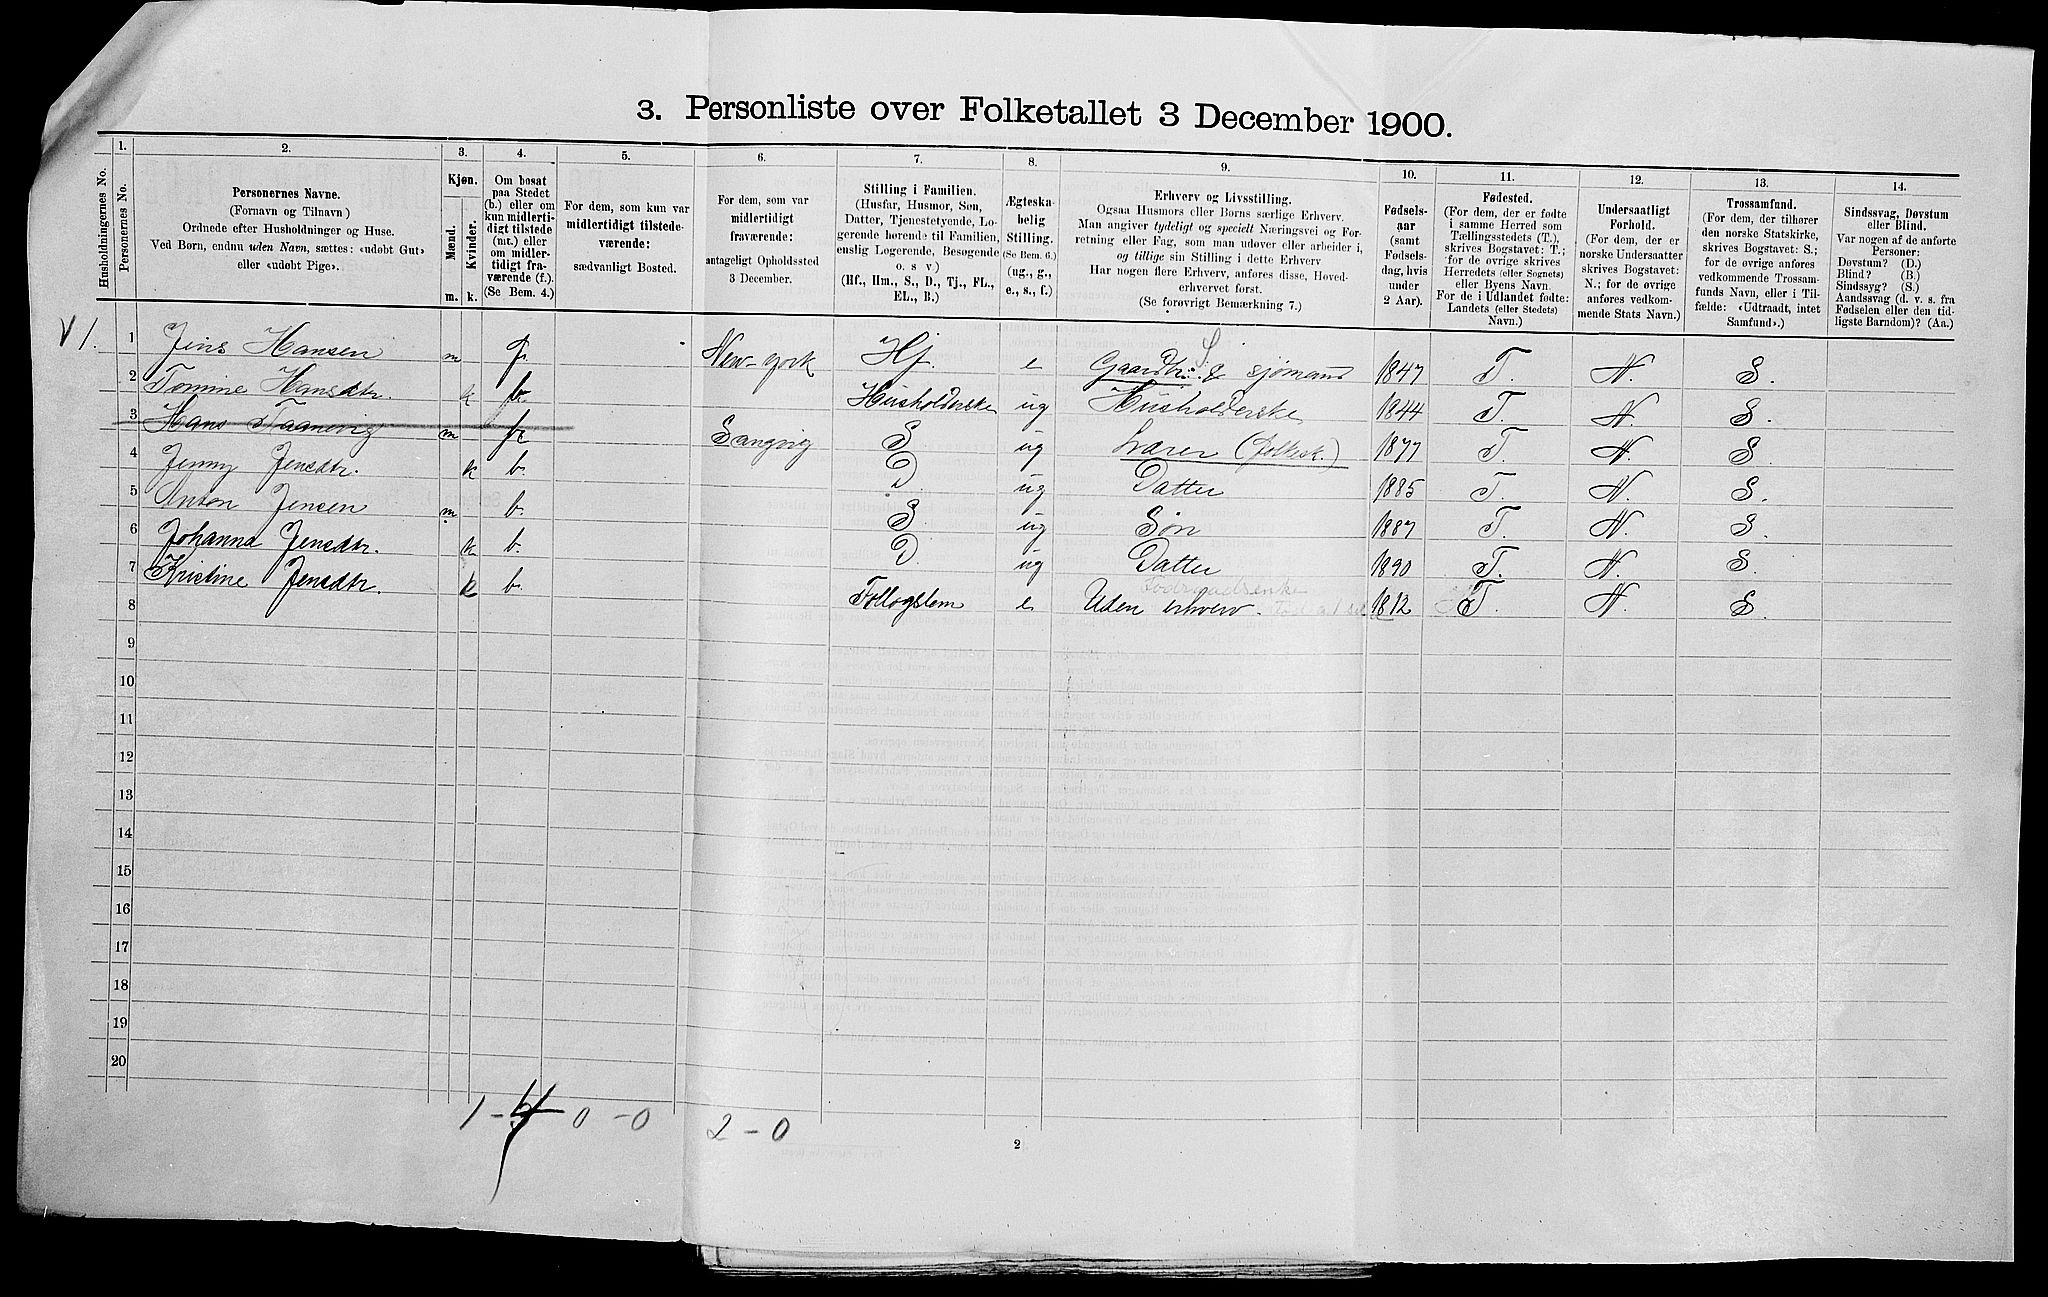 3. Personliste over Folketallet 3 December 1900.
1. 2. 3. 4. 5. 6. 7. 8. 9. 10. 11. 12. 13. 14.
Husholdningernes No.
Personernes No.
Personernes Navne.
(Fornavn og Tilnavn)
Ordnede efter Husholdninger og Huse.
Ved Børn, endnu uden Navn, sættes: «udøbt Gut»
eller «udøbt Pige».
Kjøn.
Mænd.
Kvinder.
m. k.
Om bosat
paa Stedet
(b.) eller om
kun midlerti-
digt tilstede
(mt.) eller
om midler-
tidigt fra-
værende (f.).
(Se Bem. 4.)
For dem, som kun var
midlertidigt tilstede-
værende:
sædvanligt Bosted.
For dem, som var
midlertidigt
fraværende:
antageligt Opholdssted
3 December.
Stilling i Familien.
(Husfar, Husmor, Søn,
Datter, Tjenestetyende, Lo-
gerende hørende til Familien,
enslig Logerende, Besøgende
o. s v.)
(Hf., Hm., S., D., Tj., FL.,
EL., B.)
Ægteska-
belig
Stilling.
(Se Bem. 6.)
(ug., g.,
e., s., f.)
Erhverv og Livsstilling.
Ogsaa Husmors eller Børns særlige Erhverv.
Man angiver tydeligt og specielt Næringsvei og For-
retning eller Fag, som man udøver eller arbeider i,
og tillige sin Stilling i dette Erhverv
Har nogen flere Erhverv, anføres disse, Hoved-
erhvervet først.
(Se forøvrigt Bemærkning 7.)
Fødsels-
aar
(samt
Fødsels-
dag, hvis
under
2 Aar).
Fødested.
(For dem, der er fødte
i samme Herred som
Tællingsstedets (T.),
skrives Bogstavet: T.;
for de øvrige skrives
Herredets (eller Sognets)
eller Byens Navn.
For de i Udlandet fødte:
Landets (eller Stedets)
Navn.)
Undersaatligt
Forhold.
(For dem, der er
norske Undersaatter
skrives Bogstavet:
N.; for de øvrige
anføres vedkom-
mende Stats Navn.)
Trossamfund.
(For dem, der tilhører
den norske Statskirke,
skrives Bogstavet: S.;
for de øvrige anføres
vedkommende Trossam-
funds Navn, eller i Til-
fælde: «Udtraadt, intet
Samfund».)
Sindssvag, Døvstum
eller Blind.
Var nogen af de anførte
Personer:
Døvstum? (D.)
Blind? (B.)
Sindssyg? (S.)
Aandssvag (d. v. s. fra
Fødselen eller den tid-
ligste Barndom)? (Aa.)
V 1. 1 Jens Hansen m f. New-york Hf e Gaardbr. S. & sjømand 1847 T. N. S.
2 Tomine Hansdtr. k b. Husholderske ug Husholderske 1844 T. N. S.
3 Hans Taanevig m f. Sangvig S ug Lærer (folkesk.) 1877 T. N. S.
4 Jenny Jensdtr. k b. D ug Datter 1885 T. N. S.
5 Anton Jensen m b. S ug Søn 1887 T. N. S.
6 Johanna Jensdtr. k b. D ug Datter 1890 T. N. S.
7 Kristine Jensdtr. k b. Follogslem e Uden erhverv. 1812 T. N. S.
8
9
10
11
12
13
14
15
16
17
18
19
20
1 - 4 0 - 0 2 - 0
2